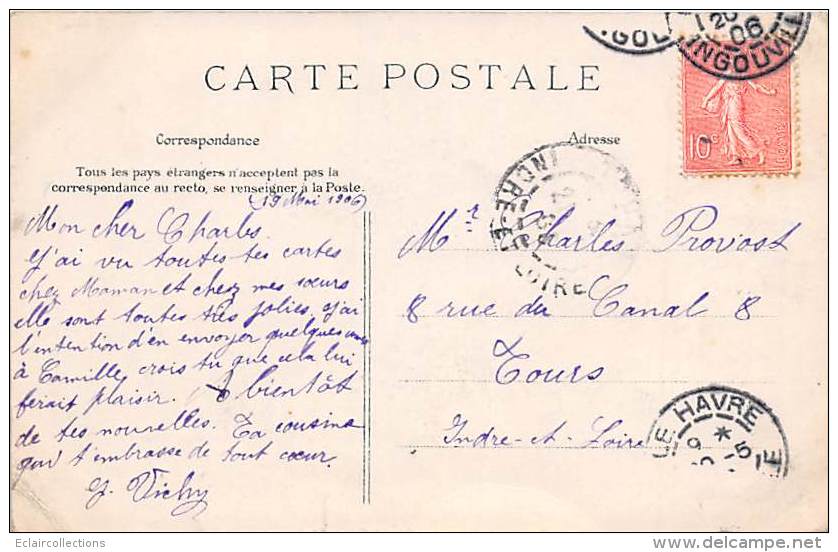 20
06
INGOUVILLE
CARTE POSTALE
10c
Correspondance
Adresse
Tous les pays étrangers n'acceptent pas la
correspondance au recto, se renseigner à la Poste.
(19 Mai 1906)
Mon cher Charles.
J'ai vu toutes tes cartes
chez Maman et chez mes sœurs
elle sont toutes très jolies, j'ai
l'intention d'en envoyer quelques unes
à Camille, crois tu que cela lui
ferait plaisir. A bientôt
de tes nouvelles. Ta cousine
qui t'embrasse de tout cœur.
J. Vichy
INDRE-ET-LOIRE
Mr Charles Provost
8 rue du Canal 8
Tours
Indre-et-Loire
LE HAVRE
Eclaircollections
www.delcampe.net